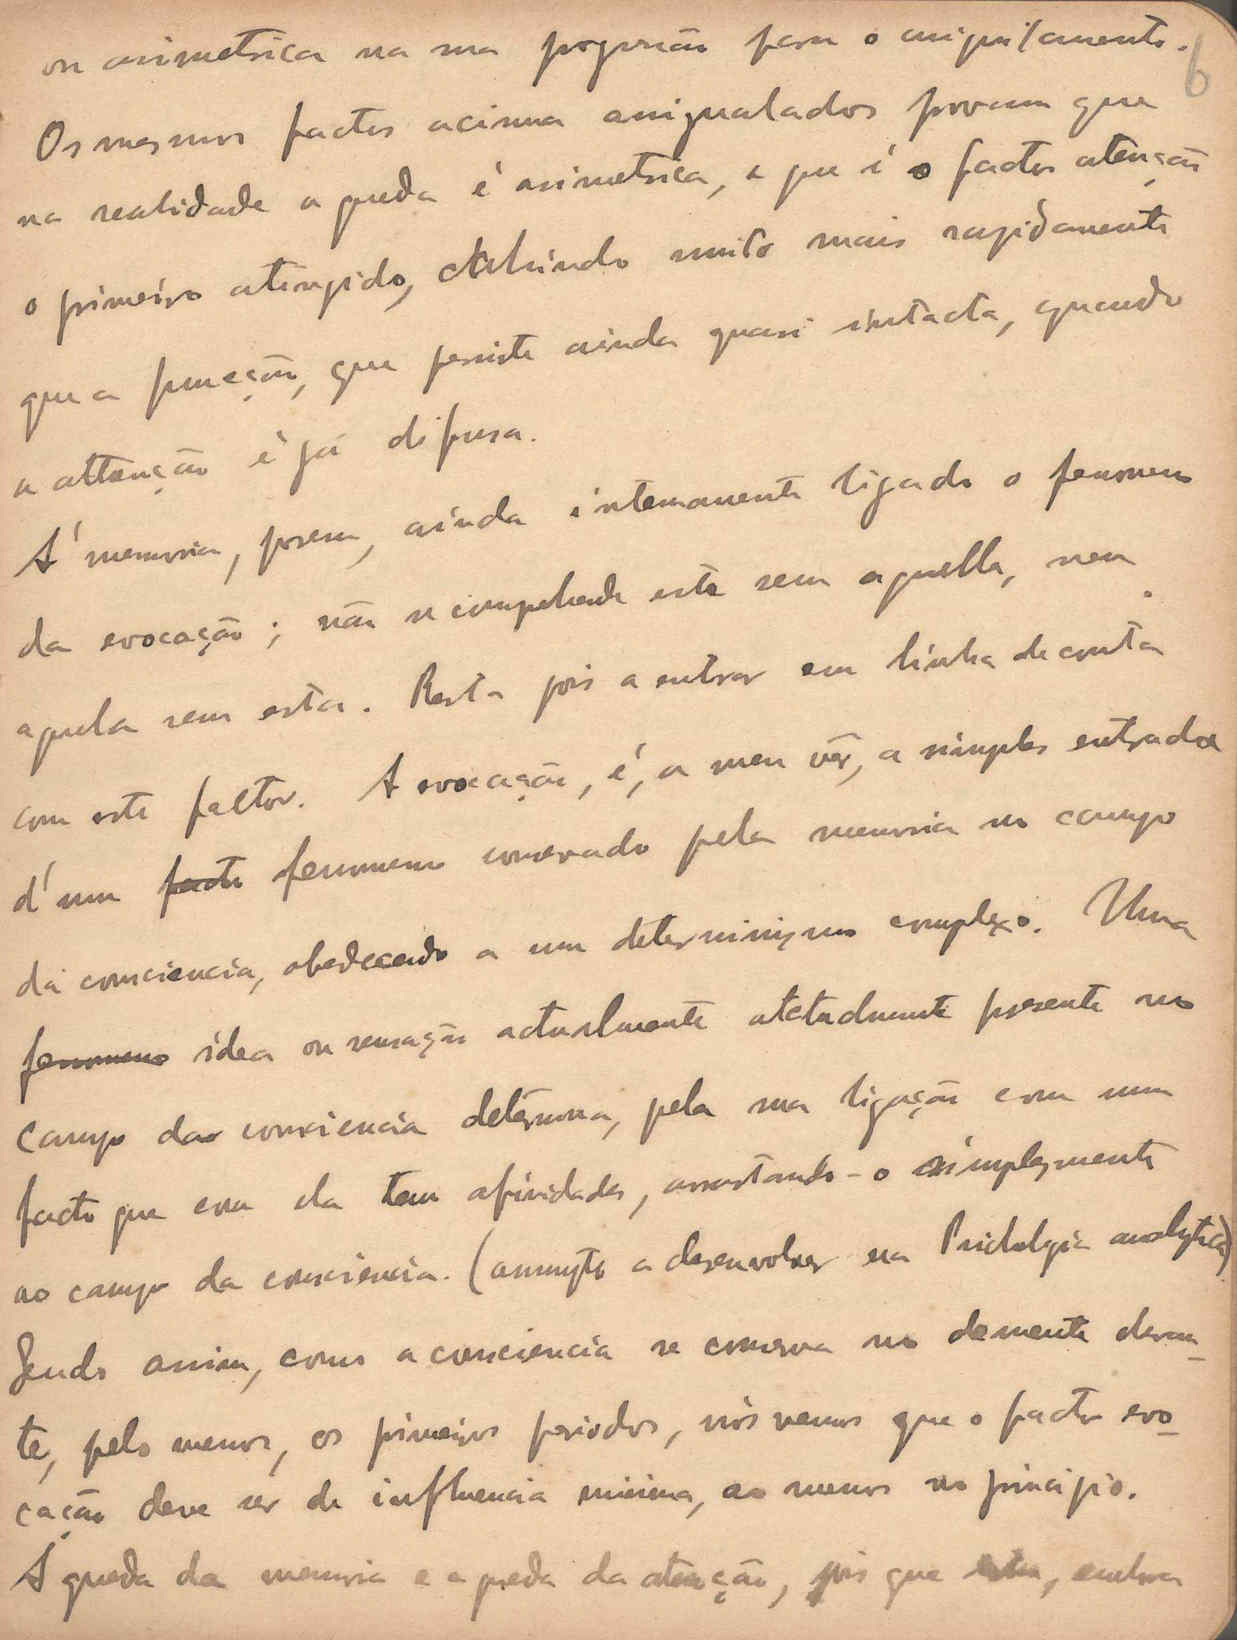 6
ou asimetrica na sua progressão para o aniquilamento.
Os mesmos factos acima assignalados provam que
na realidade a queda é asimetrica, e que é o factor atenção
o primeiro atingido, muito mais rapidamente
que a funcção, que persiste ainda quasi intacta, quando
a attenção é já difusa.
Á memoria, porem, ainda intemamente ligado o fenomeno
da evocação; não se comprehende este sem aquella, nem
aquela sem esta. Resta pois a entrar em linha de conta
com este factor. A evocação, é, a meu vêr, a simples entrada
d'um facto fenomeno conservado pela memoria no campo
da consciencia, obedecendo a um determinismo complexo. Uma
fenomeno idea ou sensação actualmente presente no
campo da consciencia determina, pela sua ligação com um
facto que com ela tem afinidades, arrastando-o simplesmente
ao campo da consciencia. (assumpto a desenvolver na Psicologia analytica)
Sendo assim, como a consciencia se conserva no demente duran-
te, pelo menos, os primeiros periodos, nós vemos que o factor evo-
cação deve ser de influencia minima, ao menos no principio.
A queda da memoria e a queda da atenção, pois que esta, embora